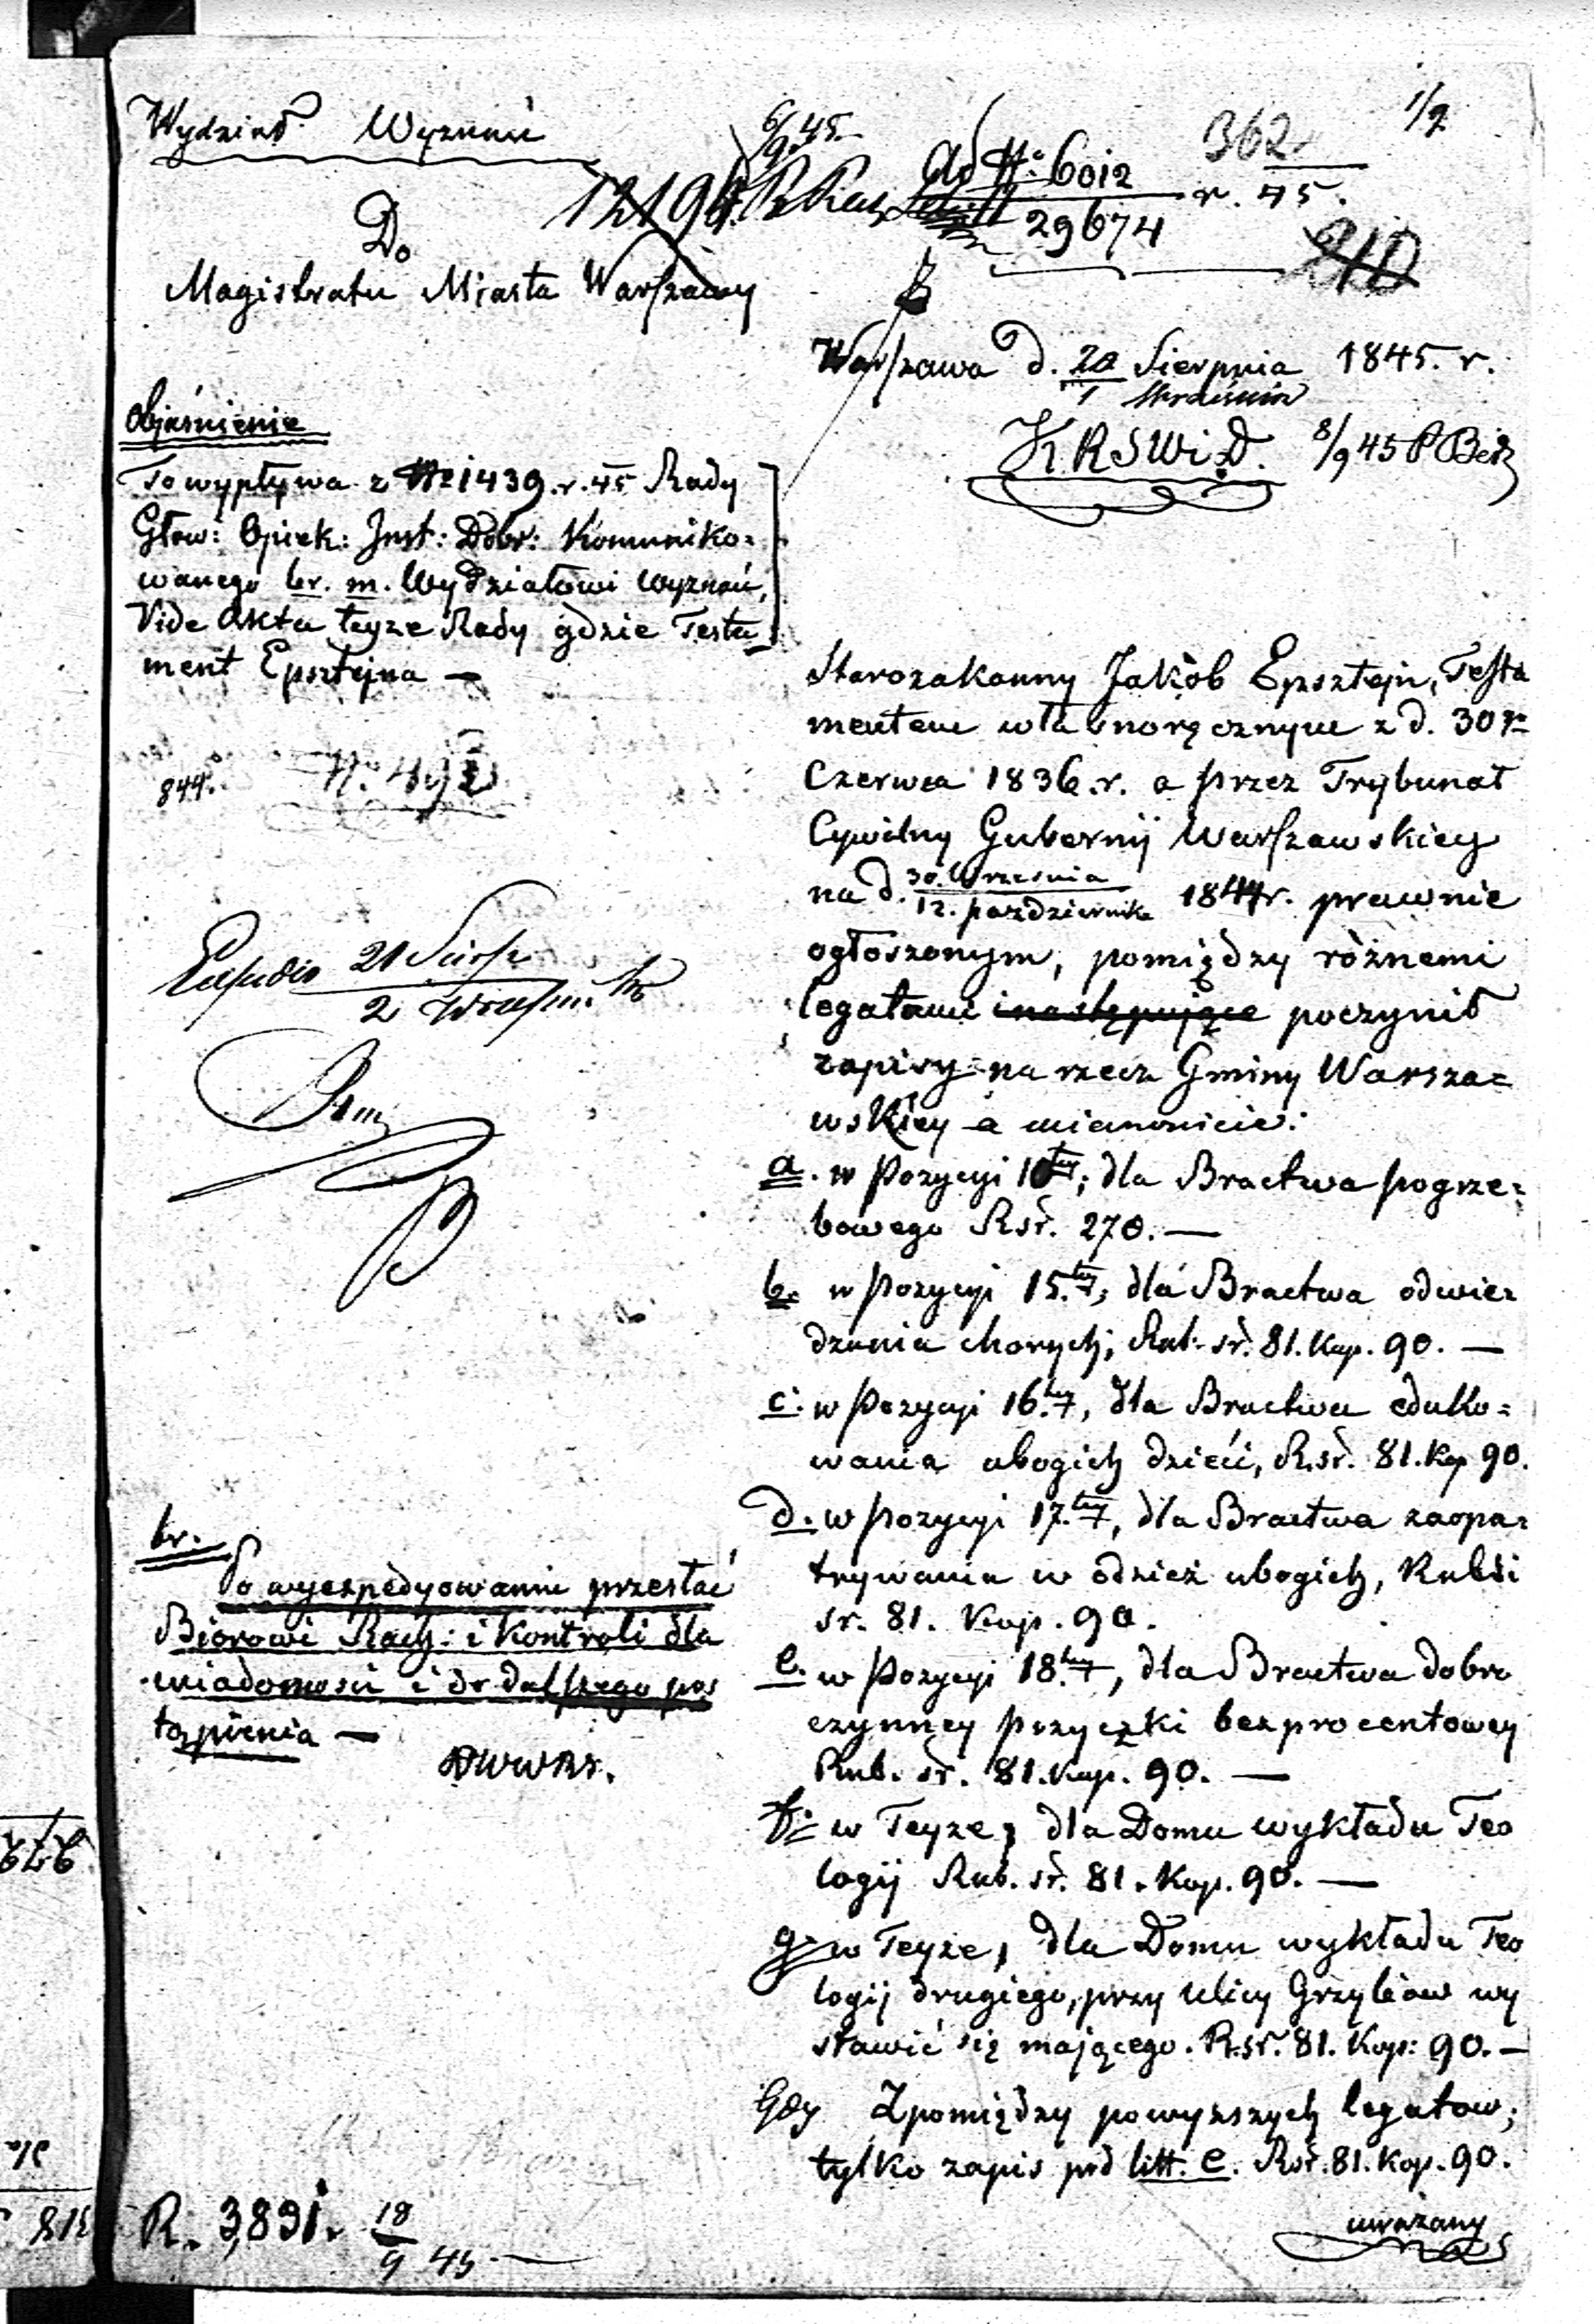 Wydział Wyznań
6/9 45
Ad N: 6012
29674
r. 45.
362
1/2
12196
210
Do
Magistratu Miasta Warszawy
Warszawa d. 20 Sierpnia 1845. r.
1 Września
K R S W i D.
8/9 45
Objaśnienie
To wypływa z No 1439. r. 45 Rady
Głow: Opiek: Inst: Dobr: Komuniko=
wanego br. m. Wydziałowi Wyznań,
Vide Akta teyże Rady gdzie Testa
ment Epsztejna —
844.
21 Sierp.
2 Wrześni
br.
Po wyexpedyowaniu przesłać
Biorowi Rach: i Kontroli dla
wiadomości i do dalszego pos
tąpienia —
R. 3,891. 18/9 45 —
Starozakonny Jakób Epsztejn, Testa
mentem własnoręcznym z d. 30go
Czerwca 1836. r. a przez Trybunał
Cywilny Gubernij Warszawskiey
na d. 30. Września
12. października 1844 r. prawnie
ogłoszonym, pomiędzy różnemi
legatami inastępujące poczynił
zapisy na rzecz Gminy Warsza=
wskiey a mianowicie:
a. w Pozycyi 10tey; dla Bractwa pogrze=
bowego Rsr. 270. —
b. w Pozycyi 15.tey; dla Bractwa odwie=
dzania chorych; Rub. sr. 81. Kop. 90. —
c. w Pozycyi 16.tey, dla Bractwa eduko=
wania ubogich dzieci, R. sr. 81. Kop 90.
d. w Pozycyi 17.tey, dla Bractwa zaopa=
trywania w odzież ubogich, Rubli
sr. 81. Kop. 90.
e. w Pozycyi 18.tey, dla Bractwa dobro
czynney pożyczki bezprocentowey
Rub. sr. 81. Kop. 90. —
f: w Teyże, dla Domu wykładu Teo
logij Rub. sr. 81. Kop. 90. —
g. w Teyże, dla Domu wykładu Teo
logij drugiego, przy Ulicy Grzybów wy
stawić się mającego. R. sr. 81. Kop: 90. —
Gdy Zpomiędzy powyższych legatow;
tylko zapis pod litt. e. Rsr. 81. Kop. 90.
uważany